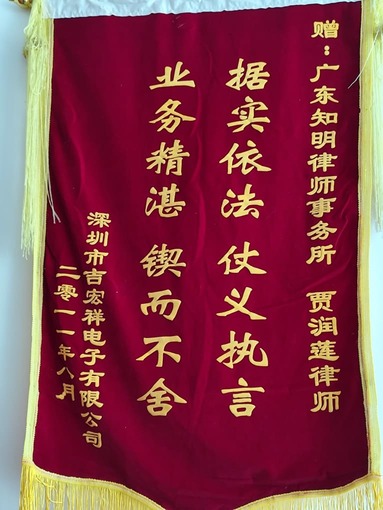 赠：广东知明律师事务所 贾润莲律师
据实依法 仗义执言
业务精湛 锲而不舍
深圳市吉宏祥电子有限公司
二零一一年八月